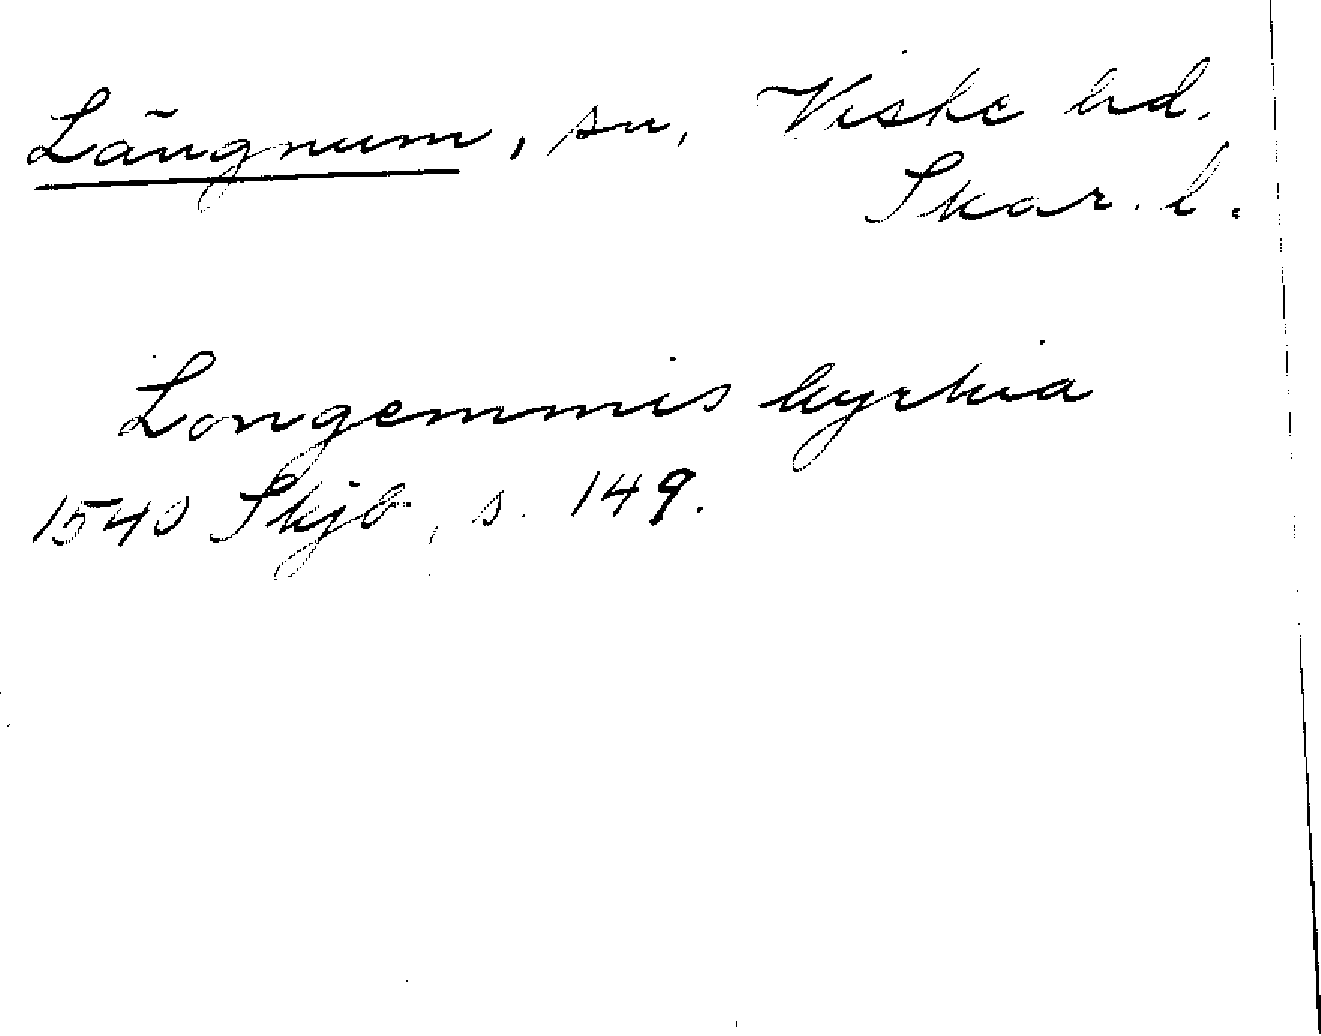 Längnum, sn, Viske hd.
Skar. l.
Longemmis kyrkia
1540 Skjb, s. 149.